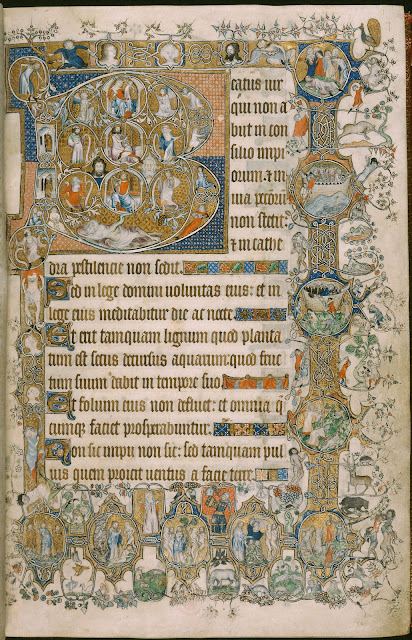 Beatus uir
qui non a
biit in con
silio impi
orum: & in
uia pctōrum
non stetit:
& in cathe
dra pestilencie non sedit.
Sed in lege domini uoluntas eius: et in
lege eius meditabitur die ac nocte.
Et erit tamquam lignum quod planta
tum est secus decursus aquarum: quod fruc
tum suum dabit in tempore suo
Et folium eius non defluet: et omnia q
cumq; faciet prosperabuntur.
Non sic impii non sic: sed tamquam pul
uis quem proicit uentus a facie terre.